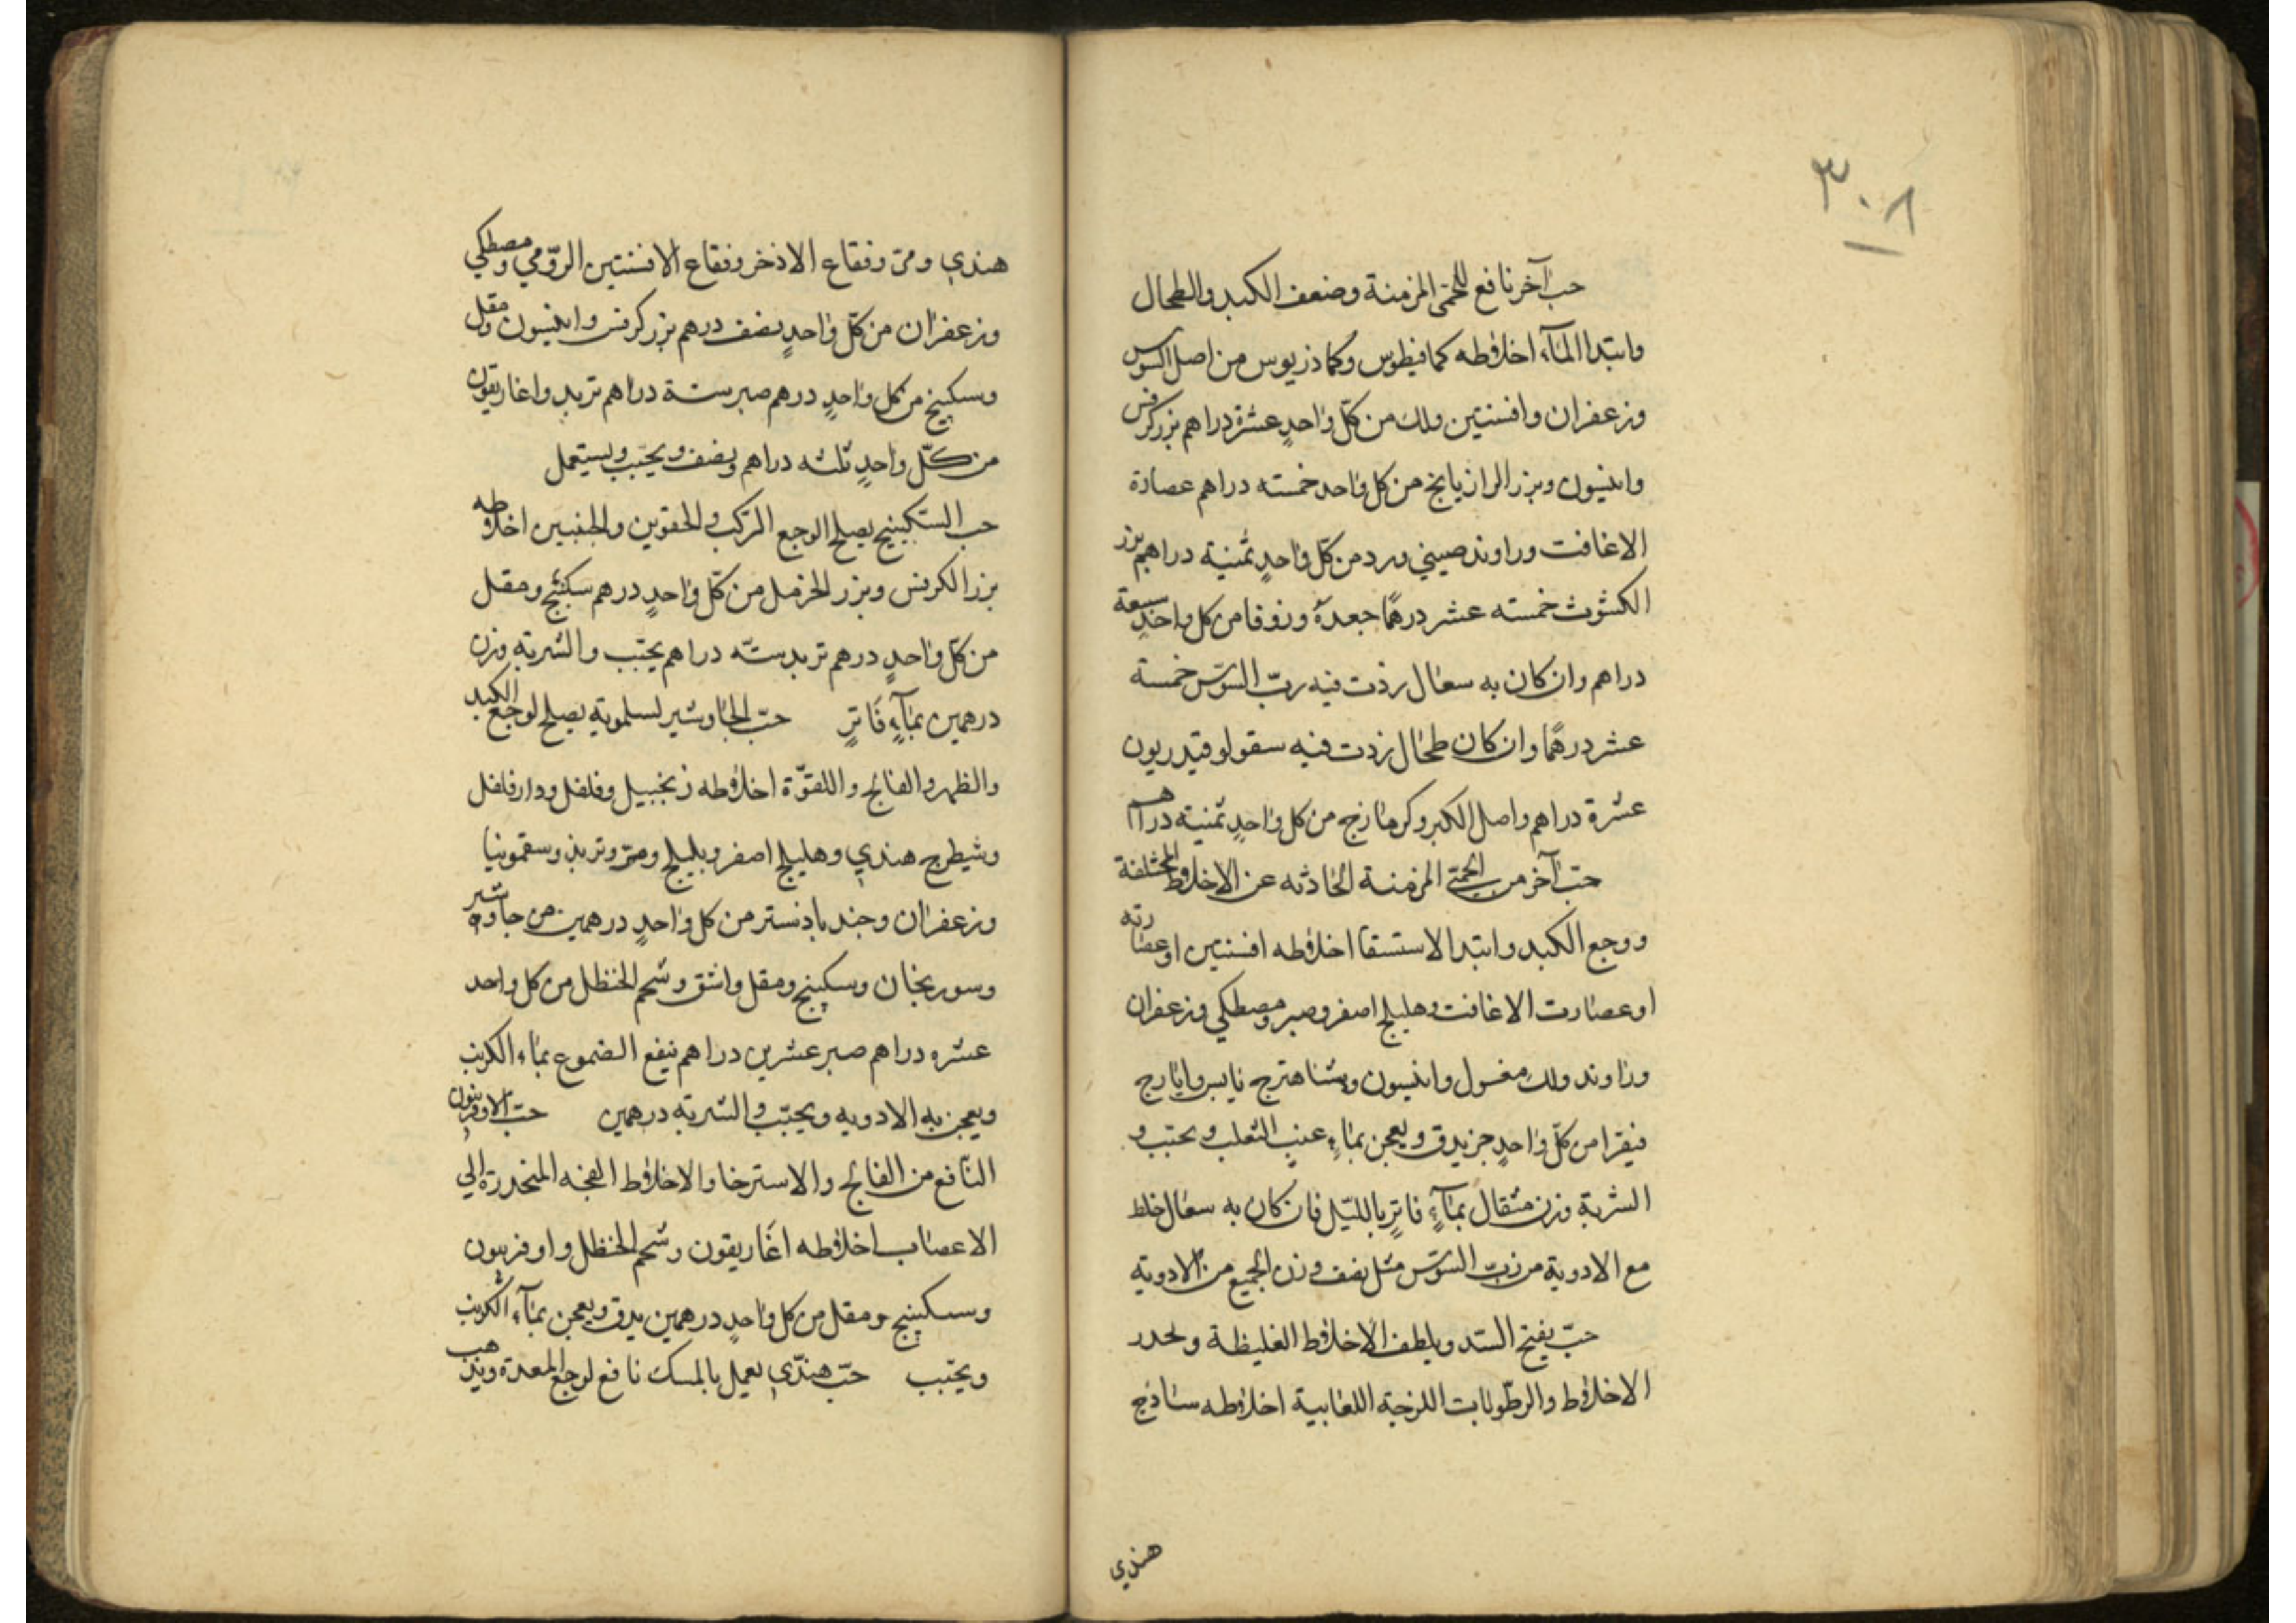 ٣٠٨
حب آخر نافع للحمى المزمنة وضعف الكبد والطحال
وابتدا المآء اخلاطه كمافيطوس وكماذريوس من اصل السوس
وزعفران وافسنتين ولك من كلّ واحدٍ عشرة دراهم بزر كرفس
وانيسون وبزر الرازيانج من كل واحد خمسته دراهم عصارة
الاغافت وراوند صيني وورد من كلّ واحدٍ ثمنية دراهم بزر
الكشوث خمسته عشر درهمًا جعدة وزوفا من كل واحدٍ سبعة
دراهم وان كان به سعال زدت فيه ربّ السوس خمسة
عشر درهمًا وان كان طحال زدت فيه سقولوقيدريون
عشرة دراهم واصل الكبر وكرمازج من كل واحدٍ ثمنية دراهم
حبّ آخر من الحمّى المزمنة الحادثه عن الاخلاط المختلفة
ووجع الكبد وابتدا الاستسقا اخلاطه افسنتين او عصارته
او عصارت الاغافت وهليلج اصفر وصبر ومصطكي وزعفران
وراوند ولك مغسول وانيسون وشاهترج يابس وايارج
فيقرا من كلّ واحدٍ جز يدق ويعجن بماءِ عنب الثعلب ويحبّب و
الشربة وزن مثقال بمآءٍ فاترٍ بالليل فان كان به سعال خلط
مع الادوية من ربّ السوس مثل نصف وزن الجميع من الادوية
حبّ يفتح السدد ويلطف الاخلاط الغليظة ويحدر
الاخلاط والرطوبات اللزجة اللعابية اخلاطه ساذج
هندي
هندي ومرّ وفقاع الاذخر وفقاع الافسنتين الرّومي ومصطكي
وزعفران من كلّ واحدٍ نصف درهم بزر كرفس وانيسون ومقل
وسكبينج من كل واحدٍ درهم صبر ستة دراهم تربد واغاريقون
من كلّ واحدٍ ثلثه دراهم ونصف ويحبّب ويستعمل
حب السكبينج يصلح الوجع المركب في الحقوين والجنبين اخلاطه
بزر الكرفس وبزر الحرمل من كلّ واحدٍ درهم سكبينج ومقل
من كلّ واحدٍ درهم تربد ستّه دراهم يحبّب والشربة وزن
درهمين بمآءٍ فَاترٍ حبّ الجاوشير لسلمويه يصلح لوجع الكبد
والظهر والفالج واللقوّة اخلاطه زنجبيل وفلفل ودارفلفل
وشيطرج هندي وهليلج اصفر وبليلج ومرّ وتربذ وسقمونيا
وزعفران وجندبادستر من كل واحدٍ درهمين من جاوشير
وسورنجان وسكبينج ومقل واشق وشحم الحنظل من كل واحد
عشره دراهم صبر عشرين دراهم ينقع الصموغ بماء الكرنب
ويعجن به الادويه ويحبّب والشربة درهمين حبّ الاوفربيون
النّافع من الفالج والاسترخا والاخلاط الفجه المنحدرة الي
الاعصاب اخلاطه اغاريقون وشحم الحنظل واوفربيون
وسكبينج ومقل من كل واحدٍ درهمين يدق ويعجن بمآء الكرنب
ويحبب حبّ هندّي يعمل بالمسك نافع لوجع المعدة ويذهب